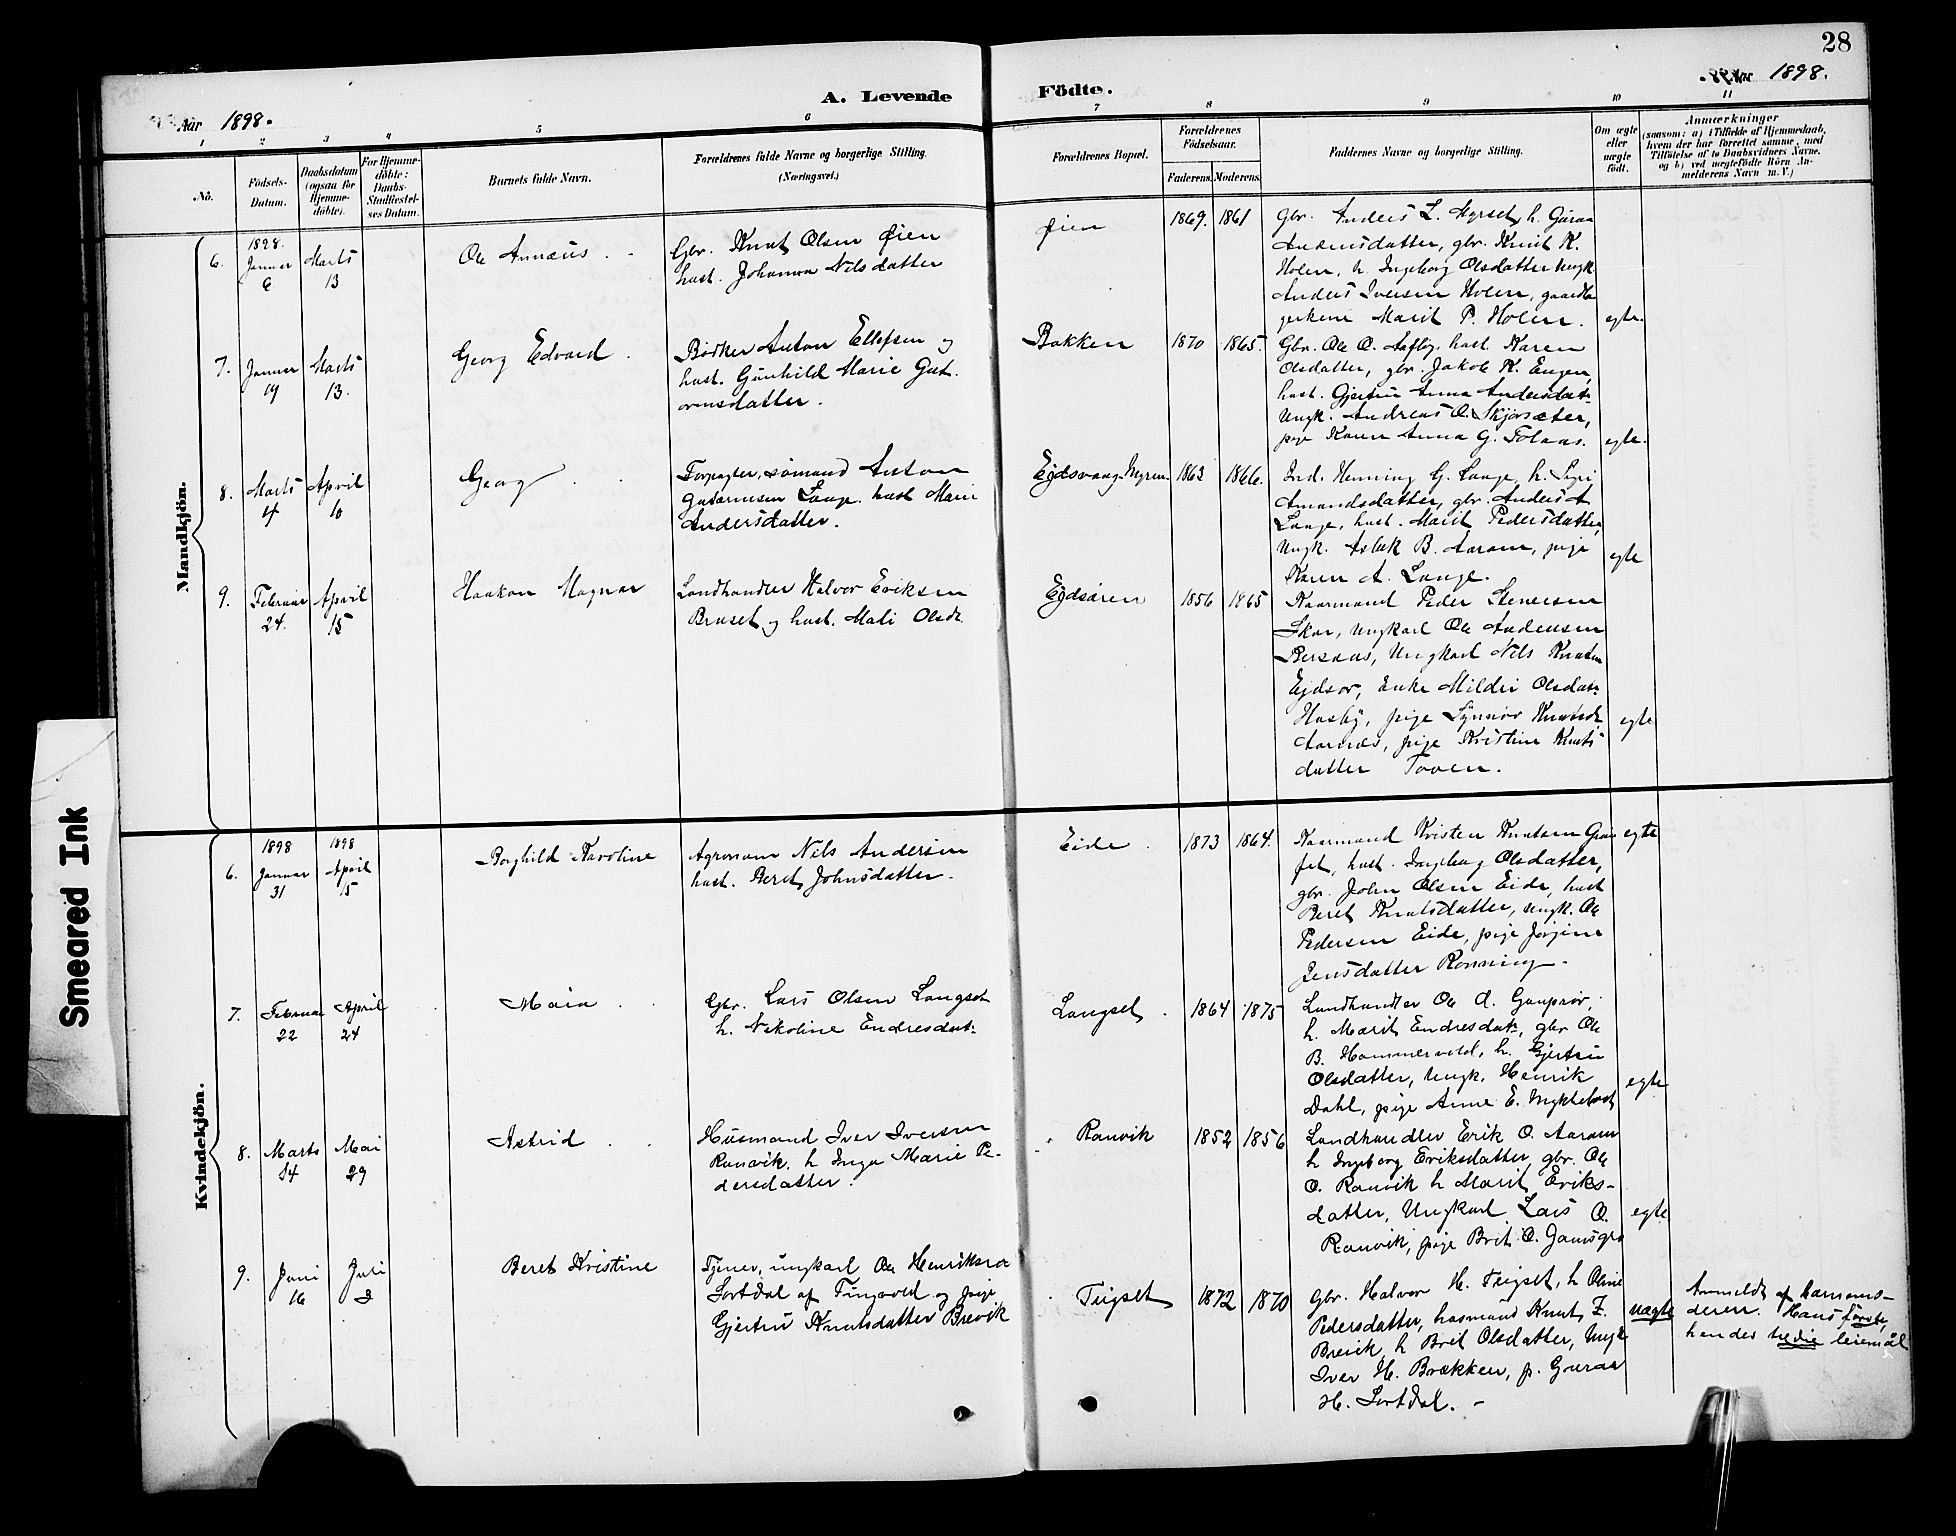 28
Aar 1898.
A. Levende Födte.
Aar 1898.
1 2 3 4 5 6 7 8 9 10 11
No.
Födsels-
Datum.
Daabsdatum
(ogsaa for
Hjemme-
döbte).
For Hjemme-
döbte:
Daabs-
Stadfæstel-
ses Datum.
Barnets fulde Navn.
Forældrenes fulde Navne og borgerlige Stilling.
(Næringsvei.)
Forældrenes Bopæl.
Forældrenes
Födselsaar.
Faderens. Moderens.
Faddernes Navne og borgerlige Stilling.
Om ægte
eller
uægte
födt.
Anmærkninger
(saasom: a) i Tilfælde af Hjemmedaab,
hvem der har forrettet samme, med
Tilföielse af to Daabsvidners Navne,
og b) ved uægtefödte Börn An-
melderens Navn m. V.)
Mandkjön.
6.
1898.
Januar
6
Marts
13
Ole Annæus
Gbr. Knut Olsen Øien
hust. Johanna Nilsdatter
Øien
1869. 1861
Gbr. Anders L. Myrset, h. Guran
Andersdatter, gbr. Knut K.
Holen, h. Ingeborg Olsdatter Ungk
Anders Iversen Holen, gaardbr
pigerne Marit P. Holen.
egte.
7.
Januar
19
Marts
13.
Georg Edvard
Bødker Anton Ellefsen og
hust. Gunhild Marie Gut-
ormsdatter.
Bakken
1870 1865.
Gbr. Ole O. Aasbø, hust. Karen
Olsdatter, gbr. Jakob K. Engen,
hust. Gjertru Anna Andersdatr
Ungk. Andreas O. Skjørsæter,
pige Karen Anna G. Tolaas.
egte.
8.
Marts
4
April
10
Georg
Forpagter, sømand Anton
Gutormsen Lange. hust Marie
Andersdatter.
Ejdsvaag Myren
1863 1866.
Ind. Henning G. Lange, h. Siri
Amundsdatter, gbr. Anders A
Lange, hust. Marit Pedersdatter,
Ungk. Aslak B. Aaram, pige
Karen A. Lange.
egte
9.
Februar
24.
April
15
Haakon Magnar
Landhandler Halvor Eriksen
Bruset og hust. Mali Olsdt.
Ejdsøren
1856 1865
Kaarmand Peder Stenersen
Skar, Ungkarl Ole Andersen
Bersaas, Ungkarl Nils Knutsen
Ejdsør, Enke Mildri Olsdatr
Husby, pige Synnøv Knutsdt
Aarnes, pige Kristine Knuts
datter Toven.
egte
Kvindekjön.
6.
1898
Januar
31
1898
April
15
Borghild Karoline
Agronom Nils Andersen
hust. Beret Johnsdatter.
Eide
1873 1864.
Kaarmand Kristen Knutsen Gran
fet, hust. Ingeborg Olsdatter,
gbr. John Olsen Eide, hust
Beret Knutsdatter, ungk. Ole
Pedersen Eide, pige Jørgine
Jensdatter Rønning.
egte
7.
Februar
22
April
24
Maia
Gbr. Lars Olsen Langset
h. Nikoline Endresdatr
Langset
1864 1875
Landhandler Ole A. Gauprør,
h. Marit Endresdatr, gbr Ole
B. Hammervold, h. Gjertru
Olsdatter, Ungk. Henrik
Dahl, pige Anne E. Myklebost
egte
8.
Marts
14
Mai
29
Astrid
Husmand Iver Iversen
Ranvik, h Inga Marie Pe-
dersdatter.
Ranvik
1852 1856
Landhandler Erik O. Aaram
h Ingeborg Eriksdatter, gbr. Ole
O. Ranvik h Marit Eriks-
datter, Ungkarl Lars O.
Ranvik, pige Brit O.
egte
9.
Juni
16
Juli
3
Beret Kristine
Tjener, ungkarl Ole Henriksen
Sortdal af Tingvold og pige
Gjertru Knutsdatter Brevik
Tigset
1872 1870
Gbr. Halvor H. Tigset, h Oline
Pedersdatter, husmand Knut I.
Brevik, h Brit Olsdatter, Ungk
Iver H. Brækken, p. Guraa
H. Sortdal.
uægte
Anmeldt af barnemo-
deren. Hans første,
hendes tredie leiemål
Smeared Ink